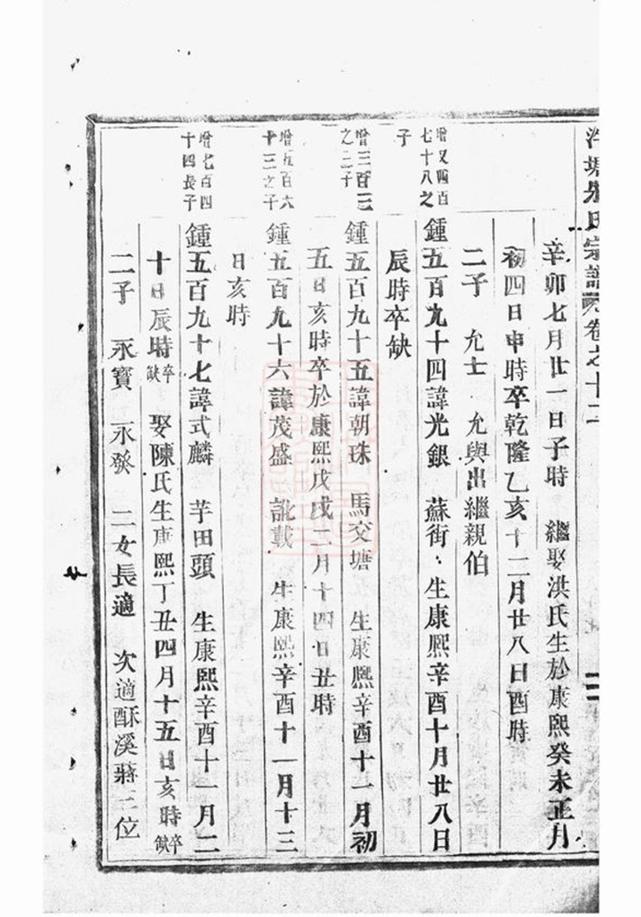 氏宗譜卷之十二
辛卯七月廿一日子時　繼娶洪氏生於康熙癸未正月
初四日申時卒乾隆乙亥十二月廿八日酉時
二子　允士　允與出繼親伯
增又四百
七十八之
子
鍾五百九十四諱光銀　蘇街　生康熙辛酉十月廿八日
辰時卒缺
增三百三
之二子
鍾五百九十五諱朝珠　馬交塘　生康熙辛酉十一月初
五日亥時卒於康熙戊戌二月十四日丑時
增五百六
十三之子
鍾五百九十六諱茂盛　訛載　生康熙辛酉十一月十三
日亥時
增七百四
十四長子
鍾五百九十七諱式麟　芋田頭　生康熙辛酉十一月二
十日辰時卒缺　娶陳氏生康熙丁丑四月十五日亥時卒缺
二子　永寶　永發　二女長適　次適酥溪蔣三位